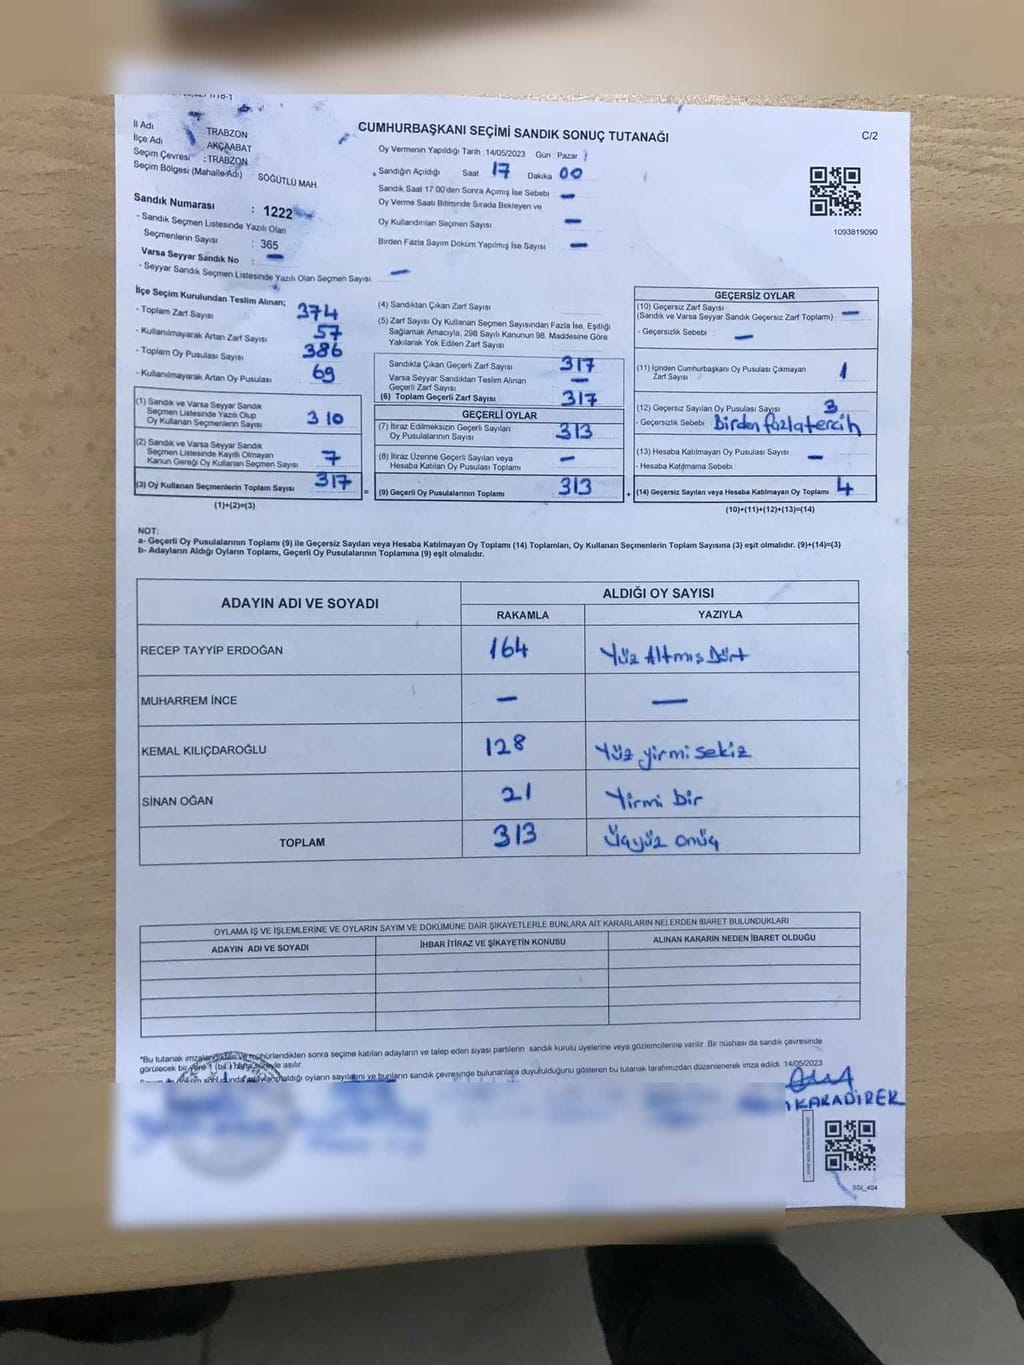 CUMHURBAŞKANI SEÇİMİ SANDIK SONUÇ TUTANAĞI
C/2
İl Adı TRABZON
İlçe Adı AKÇAABAT
Seçim Çevresi : TRABZON
Seçim Bölgesi (Mahalle Adı) SÖĞÜTLÜ MAH.
Sandık Numarası : 1222
- Sandık Seçmen Listesinde Yazılı Olan
Seçmenlerin Sayısı : 365
Varsa Seyyar Sandık No : —
- Seyyar Sandık Seçmen Listesinde Yazılı Olan Seçmen Sayısı: —
Oy Vermenin Yapıldığı Tarih :14/05/2023 Gün : Pazar
Sandığın Açıldığı Saat 17 Dakika 00
Sandık Saat 17:00'den Sonra Açımış İse Sebebi : —
Oy Verme Saati Bitiminde Sırada Bekleyen ve
Oy Kullandırılan Seçmen Sayısı —
Birden Fazla Sayım Döküm Yapılmış İse Sayısı —
1093819090
İlçe Seçim Kurulundan Teslim Alınan;
- Toplam Zarf Sayısı 374
- Kullanılmayarak Artan Zarf Sayısı 57
- Toplam Oy Pusulası Sayısı 386
- Kullanılmayarak Artan Oy Pusulası 69
(1) Sandık ve Varsa Seyyar Sandık
Seçmen Listesinde Yazılı Olup
Oy Kullanan Seçmenlerin Sayısı 310
(2) Sandık ve Varsa Seyyar Sandık
Seçmen Listesinde Kayıtlı Olmayan
Kanun Gereği Oy Kullanan Seçmen Sayısı 7
(3) Oy Kullanan Seçmenlerin Toplam Sayısı 317
(1)+(2)=(3)
(4) Sandıktan Çıkan Zarf Sayısı
(5) Zarf Sayısı Oy Kullanan Seçmen Sayısından Fazla İse, Eşitliği
Sağlamak Amacıyla, 298 Sayılı Kanunun 98. Maddesine Göre
Yakılarak Yok Edilen Zarf Sayısı
Sandıkta Çıkan Geçerli Zarf Sayısı 317
Varsa Seyyar Sandıktan Teslim Alınan
Geçerli Zarf Sayısı —
(6) Toplam Geçerli Zarf Sayısı 317
GEÇERLİ OYLAR
(7) İtiraz Edilmeksizin Geçerli Sayılan
Oy Pusulalarının Sayısı 313
(8) İtiraz Üzerine Geçerli Sayılan veya
Hesaba Katılan Oy Pusulası Toplamı —
= (9) Geçerli Oy Pusulalarının Toplamı 313
GEÇERSİZ OYLAR
(10) Geçersiz Zarf Sayısı
(Sandık ve Varsa Seyyar Sandık Geçersiz Zarf Toplamı) —
- Geçersizlik Sebebi : —
(11) İçinden Cumhurbaşkanı Oy Pusulası Çıkmayan
Zarf Sayısı 1
(12) Geçersiz Sayılan Oy Pusulası Sayısı 3
- Geçersizlik Sebebi : Birden fazla tercih
(13) Hesaba Katılmayan Oy Pusulası Sayısı —
- Hesaba Katılmama Sebebi
+ (14) Geçersiz Sayılan veya Hesaba Katılmayan Oy Toplamı 4
(10)+(11)+(12)+(13)=(14)
NOT:
a- Geçerli Oy Pusulalarının Toplamı (9) ile Geçersiz Sayılan veya Hesaba Katılmayan Oy Toplamı (14) Toplamları, Oy Kullanan Seçmenlerin Toplam Sayısına (3) eşit olmalıdır. (9)+(14)=(3)
b- Adayların Aldığı Oyların Toplamı, Geçerli Oy Pusulalarının Toplamına (9) eşit olmalıdır.
ADAYIN ADI VE SOYADI ALDIĞI OY SAYISI
RAKAMLA YAZIYLA
RECEP TAYYİP ERDOĞAN 164 Yüz Altmış Dört
MUHARREM İNCE — —
KEMAL KILIÇDAROĞLU 128 Yüz yirmi sekiz
SİNAN OĞAN 21 Yirmi bir
TOPLAM 313 Üçyüz onüç
OYLAMA İŞ VE İŞLEMLERİNE VE OYLARIN SAYIM VE DÖKÜMÜNE DAİR ŞİKAYETLERLE BUNLARA AİT KARARLARIN NELERDEN İBARET BULUNDUKLARI
ADAYIN ADI VE SOYADI İHBAR İTİRAZ VE ŞİKAYETİN KONUSU ALINAN KARARIN NEDEN İBARET OLDUĞU
*Bu tutanak imzalandıktan ve mühürlendikten sonra seçime katılan adayların ve talep eden siyasi partilerin sandık kurulu üyelerine veya gözlemcilerine verilir. Bir nüshası da sandık çevresinde
görülecek bir yere 1 (bir) hafta süreyle asılır.
oyların sayılarını ve bunların sandık çevresinde bulunanlara duyurulduğunu gösteren bu tutanak tarafımızdan düzenlenerek imza edildi. 14/05/2023
KARADİREK
SSI_404